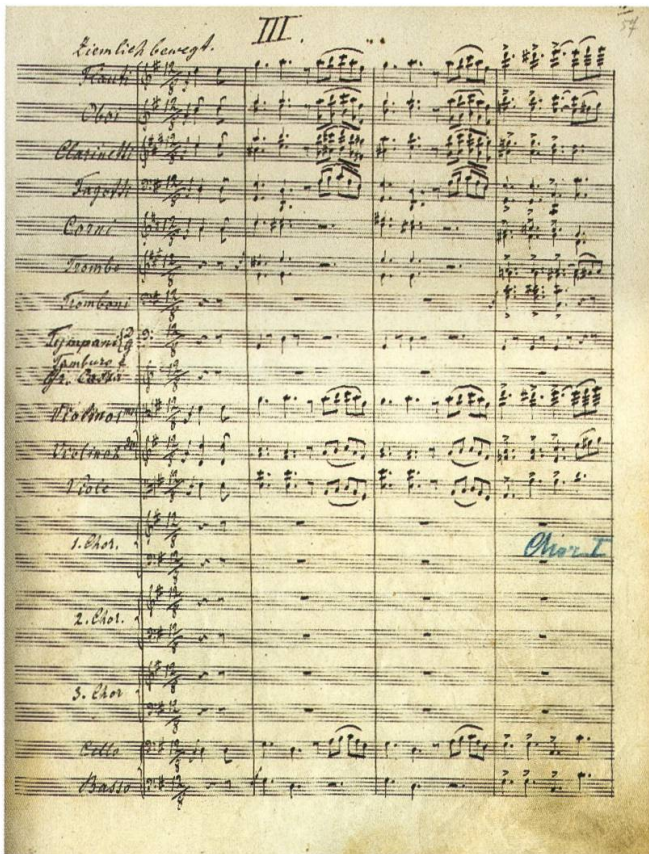 III.
57
Ziemlich bewegt.
Flauti
Oboi
Clarinetti
Fagotti
Corni
Trombe
Tromboni
Tympani
Tamburo &
Gr. Cassa
Violino 1
Violino 2
Viole
1. Chor.
Chor I
2. Chor.
3. Chor
Cello
Basso